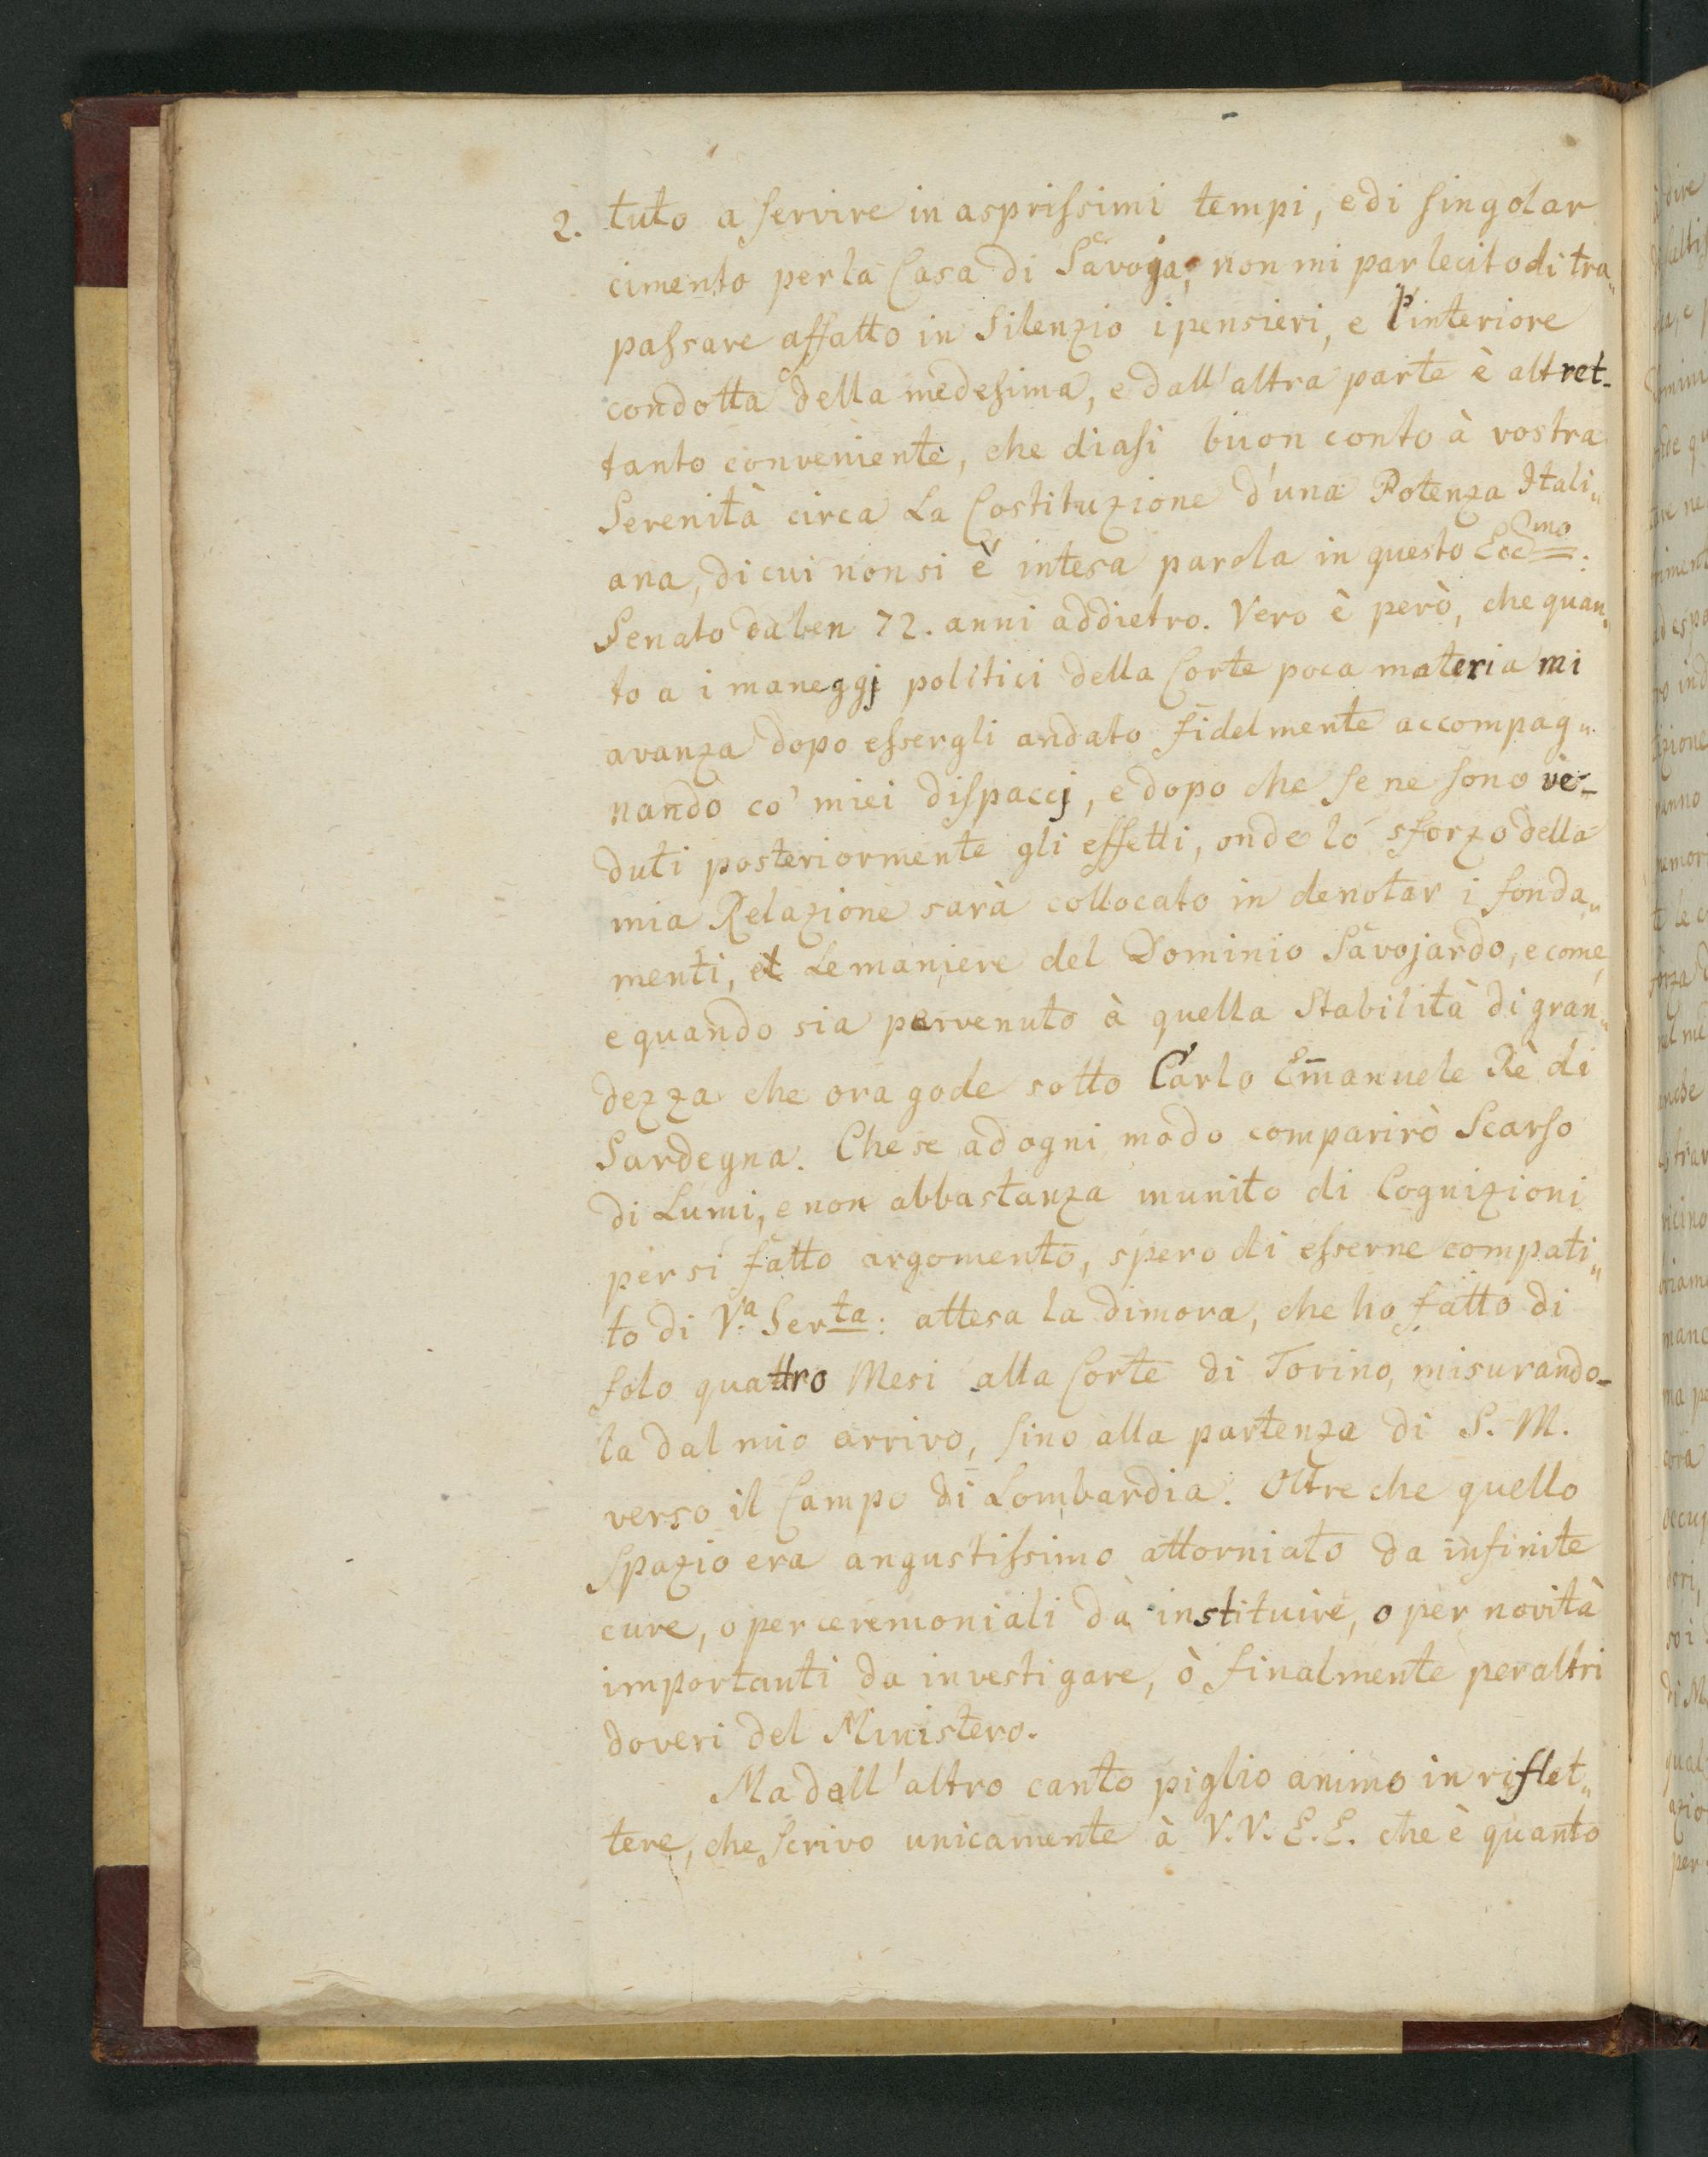 2. tuto a servire in asprissimi tempi, e di singolar
cimento per la Casa di Savoja, non mi par lecito di tra„
passare affatto in Silenzio i pensieri, e l'interiore
condotta della medesima, e dall'altra parte è altret-
tanto conveniente, che diasi buon conto à vostra
Serenità circa La Costituzione d'una Potenza Itali„
ana, di cui non si è intesa parola in questo Ecc.mo:
Senato da ben 72. anni addietro. Vero è però, che quan„
to a i maneggj politici della Corte poca materia mi
avanza dopo essergli andato fidelmente accompag„
nando co' miei dispaccj, e dopo che se ne sono ve-
duti posteriormente gli effetti, onde lo sforzo della
mia Relazione sarà collocato in denotar i fonda„
menti, et Le maniere del Dominio Savojardo, e come,
e quando sia pervenuto à quella Stabilità di gran„
dezza che ora gode sotto Carlo Em̄anuele Rè di
Sardegna. Che se ad ogni modo comparirò Scarso
di Lumi, e non abbastanza munito di Cognizioni
per si fatto argomento, spero di esserne compati„
to di V.a Ser.ta: attesa la dimora, che ho fatto di
solo quattro Mesi alla Corte di Torino, misurando-
la dal mio arrivo, sino alla partenza di S. M.
verso il Campo di Lombardia. Oltre che quello
Spazio era angustissimo attorniato da infinite
cure, o per ceremoniali da instituire, o per novità
importanti da investigare, ò finalmente per altri
doveri del Ministero.
Ma dall'altro canto piglio animo in riflet„
tere, che scrivo unicamente à V.V. E.E. che è quanto